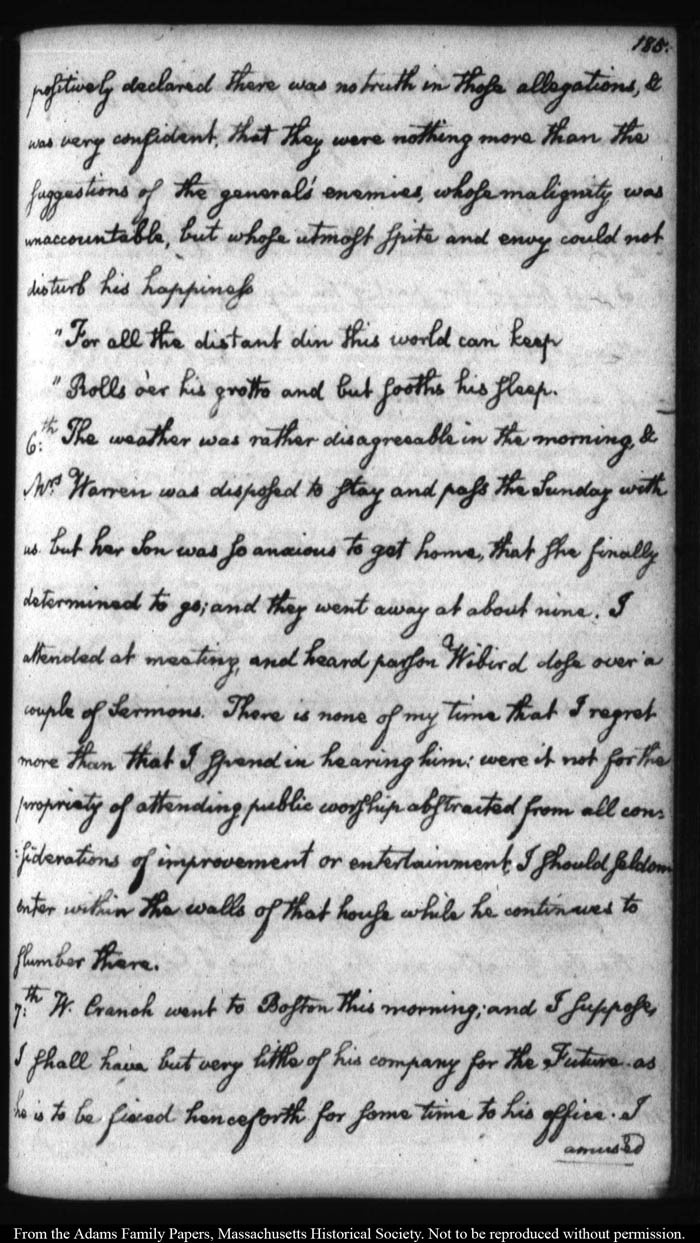 185.
positively declared there was no truth in those allegations, &
was very confident, that they were nothing more than the
suggestions of the general's enemies, whose malignity was
unaccountable, but whose utmost spite and envy could not
disturb his happiness
"For all the distant din this world can keep
"Rolls o'er his grotto and but sooths his sleep.
6:th The weather was rather disagreeable in the morning, &
Mrs Warren was disposed to stay and pass the Sunday with
us. but her Son was so anxious to get home, that she finally
determined to go; and they went away at about nine. I
attended at meeting, and heard parson Wibird dose over a
couple of Sermons. There is none of my time that I regret
more than that I spend in hearing him: were it not for the
propriety of attending public worship abstracted from all con:
:siderations of improvement or entertainment, I should seldom
enter within the walls of that house while he continues to
slumber there.
7:th W. Cranch went to Boston this morning; and I suppose,
I shall have but very little of his company for the Future. as
he is to be fixed henceforth for some time to his office. I
amused
From the Adams Family Papers, Massachusetts Historical Society. Not to be reproduced without permission.